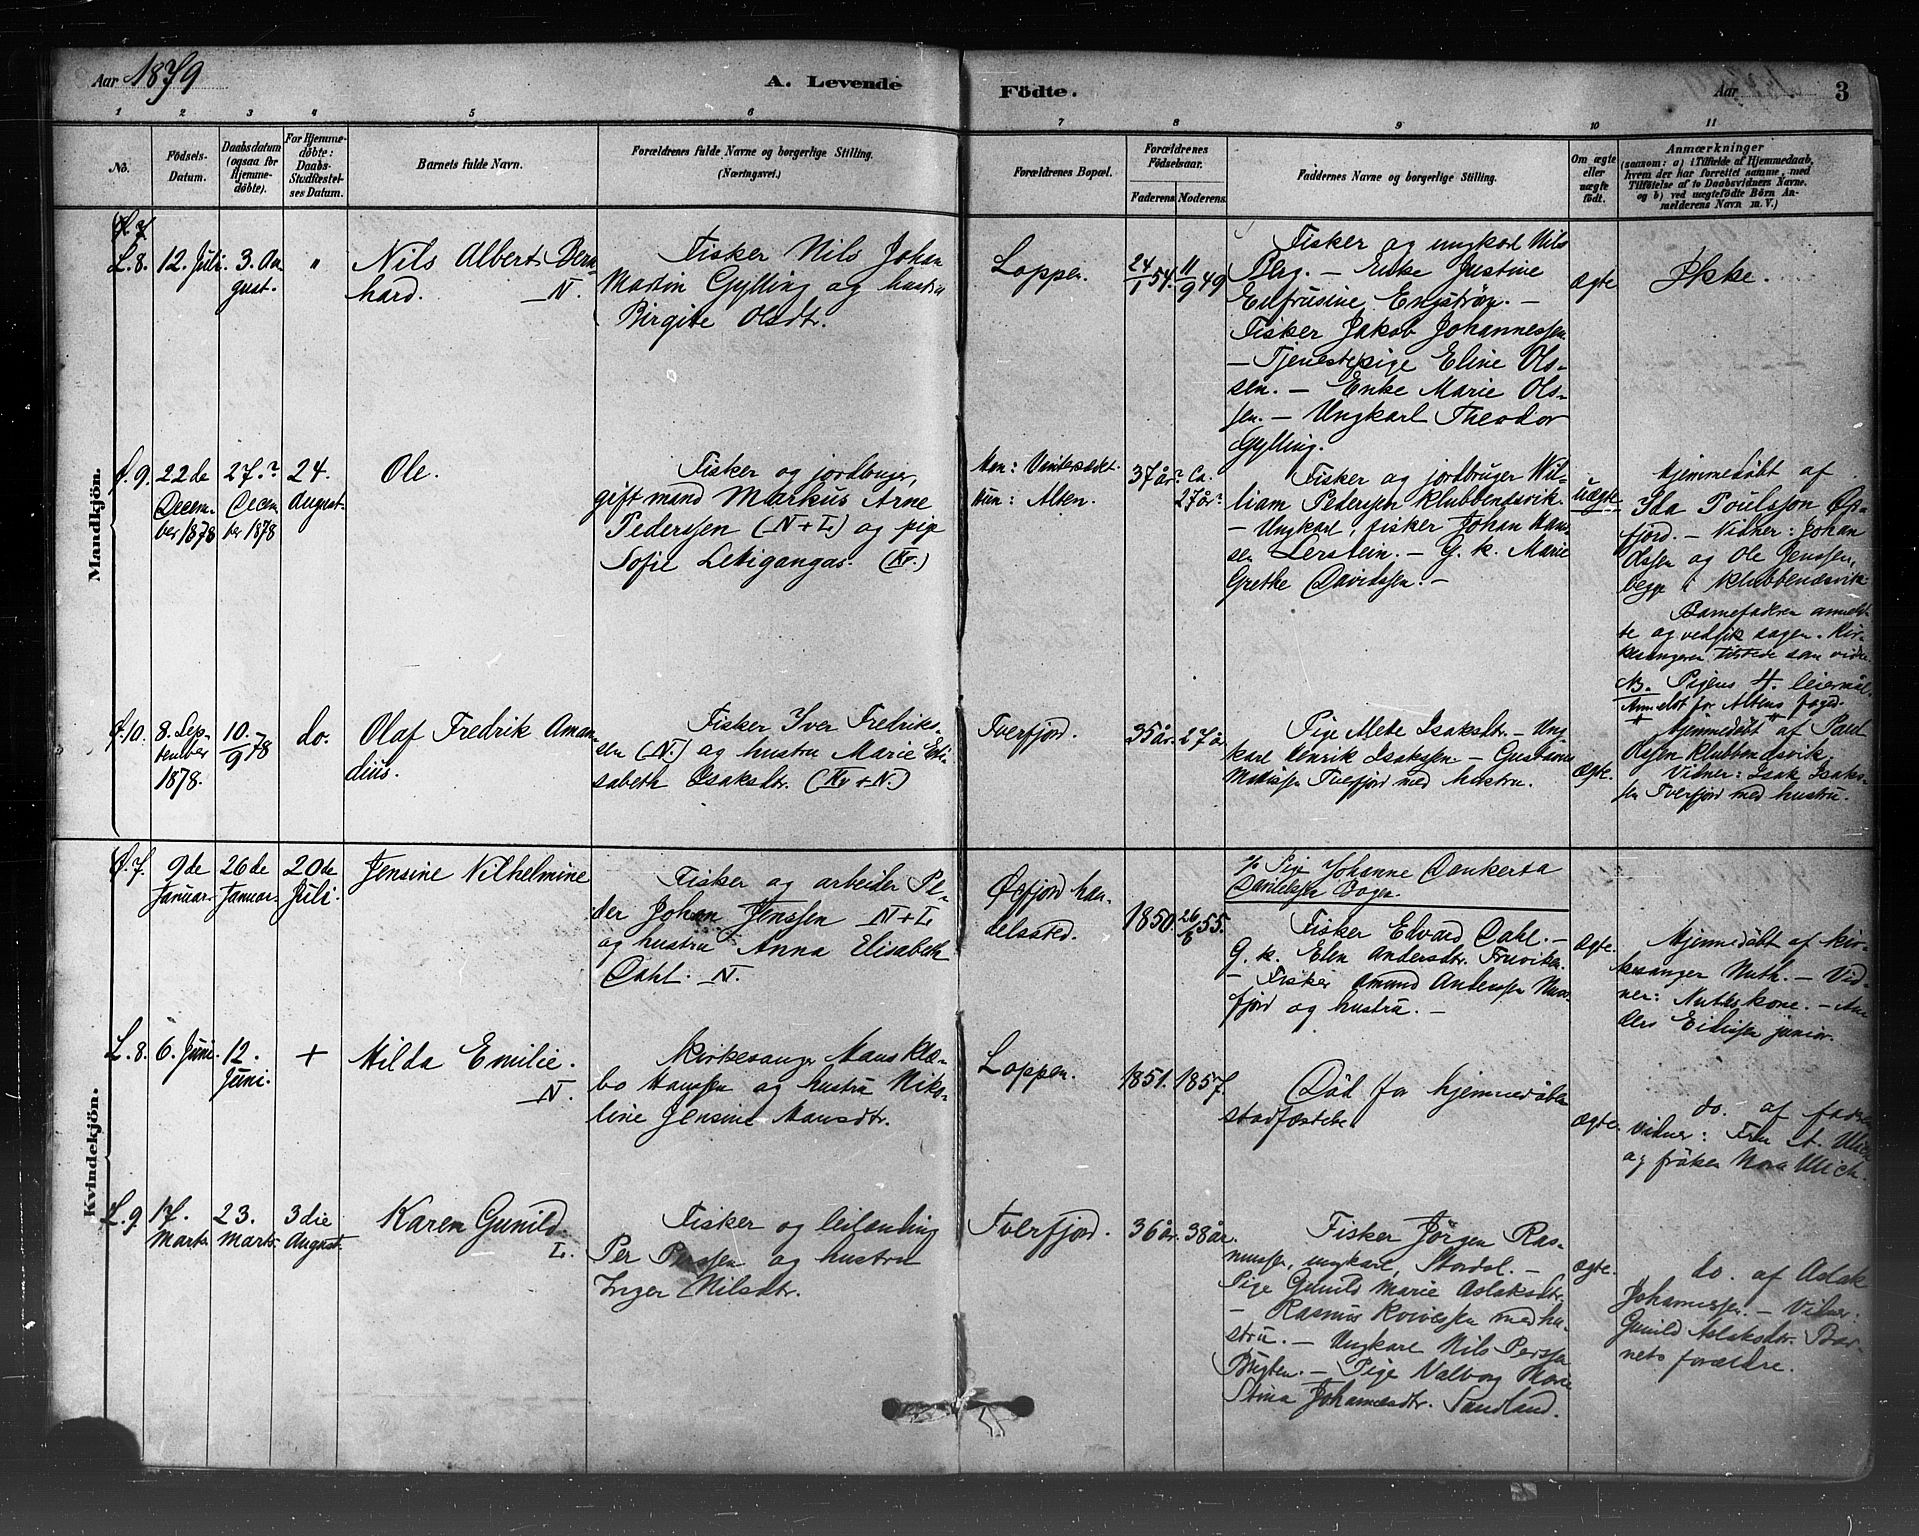 Aar 1879
A. Levende
Födte.
Aar
3
1 2 3 4 5 6 7 8 9 10 11
No.
Födsels-
Datum.
Daabsdatum
(ogsaa for
Hjemme-
döbte).
For Hjemme-
döbte:
Daabs-
Stadfæstel-
ses Datum.
Barnets fulde Navn.
Forældrenes fulde Navne og borgerlige Stilling.
(Næringsvei.)
Forældrenes Bopæl.
Forældrenes
Födselsaar.
Faderens Moderens
Faddernes Navne og borgerlige Stilling.
Om ægte
eller
uægte
födt.
Anmærkninger
(saasom: a) i Tilfælde af Hjemmedaab,
hvem der har forrettet samme, med
Tilföielse af to Daabsvidners Navne,
og b) ved uægtefödte Börn An-
melderens Navn m. V.)
Mandkjön.
L. 8.
12. Juli.
3. Au
gust.
"
Nils Albert Bern
hard. N.
Fisker Nils Johan
Martin Gylling og hustru
Birgite Olsdtr.
Loppen.
24/1 54. 11/9 49
Fisker og ungkarl Nils
Berg. — Enke Justine
Eufrusine Engström. —
Fisker Jakob Johannessen
— Tjenestepige Eline Ol-
sen. — Enke Marie Ol-
sen. — Ungkarl Theodor
Gylling.
ægte
Ikke.
Ø. 9.
22de
Decem-
ber 1878
27.?
Decem-
ber 1878
24.
August.
Ole.
Fisker og jordbruger,
gift mand Markus Arne
Pederssen (N + L) og pige
Sofie Letigangas. (Kv.)
Han:
Hun: Alten.
37 år? Ca.
27 år?
Fisker og jordbruger Wil-
liam Pedersen Klubbenæsvik.
— Ungkarl, fisker Johan Han-
sen Lerstein. — G. k. Marie
Grethe Davidssen. —
uægte
Hjemmedöbt af
Ida Poulsson Øx-
fjord. — Vidner: Johan
Olssen og Ole Jenssen,
begge i Klubbenæsvik.
Barnefaderen anmeld-
te og vedgik sagen. Kir-
kesangeren tilstede som vidne.
NB. Pigens 4. leiermål.
Anmeldt for Altens foged.
Ø. 10.
8. Sep-
tember
1878.
10/9 78
do.
Olaf Fredrik Aman-
dius.
Fisker Iver Fredrik-
sen (N.) og hustru Marie Eli-
sabeth Isaksdtr. (Kv + N.)
Tverfjord.
35 år. 27 år.
Pige Mete Isaksdtr. — Ung
karl Henrik Isakssen — Gustava
Mathissen Tverfjord med hustru.
ægte.
Hjemmedöbt af Paul
Olssen Klubbenæsvik
Vidner: Isak Isaks-
sen Tverfjord med hustru.
Kvindekjön.
Ø. 7.
9de
Januar.
26de
Januar.
20de
Juli.
Jensine Vilhelmine
Fisker og arbeider Pe-
der Johan Jenssen N + L
og hustru Anna Elisabeth
Dahl. N.
Øxfjord han-
delssted.
1850. 26/6 55.
Pige Johanne Dankerta
Danielsen
Fisker Edvard Dahl. —
G. k. Elen Andersdtr.
— Fisker Amund Anderssen
fjord og hustru. —
ægte.
Hjemmedöbt af kir-
kesanger Nuth. — Vid-
ner: Nuths kone. — An-
ders Eidissen junior.
L. 8.
6. Juni.
12.
Juni.
+
Hilda Emilie.
N.
Kirkesanger Hans Klæ-
bo Hanssen og hustru Niko-
line Jensine Hansdtr.
Loppen.
1851. 1857.
Död för hjemmedåben
stadfæstedes.
ægte.
do. af faderen
Vidner: Fru A. Ulich
og fröken Nora Ulich.
L. 9.
17.
Marts
23.
Marts
3die
August.
Karen Gunild.
L.
Fisker og leilænding
Per Perssen og hustru
Inger Nilsdtr.
Tverfjord.
36 år. 38 år.
Fisker Jörgen Ras-
mussen, ungkarl, Stordal. —
Pige Gunild Marie Aslaksdtr.
— Rasmus med hu-
stru. — Ungkarl Nils Perssen
Bugten. — Pige Valborg
Stina Johannesdtr. Sandland.
ægte.
do. af Aslak
Johannessen. — Vidner:
Gunild Aslaksdtr. Bar-
nets forældre.